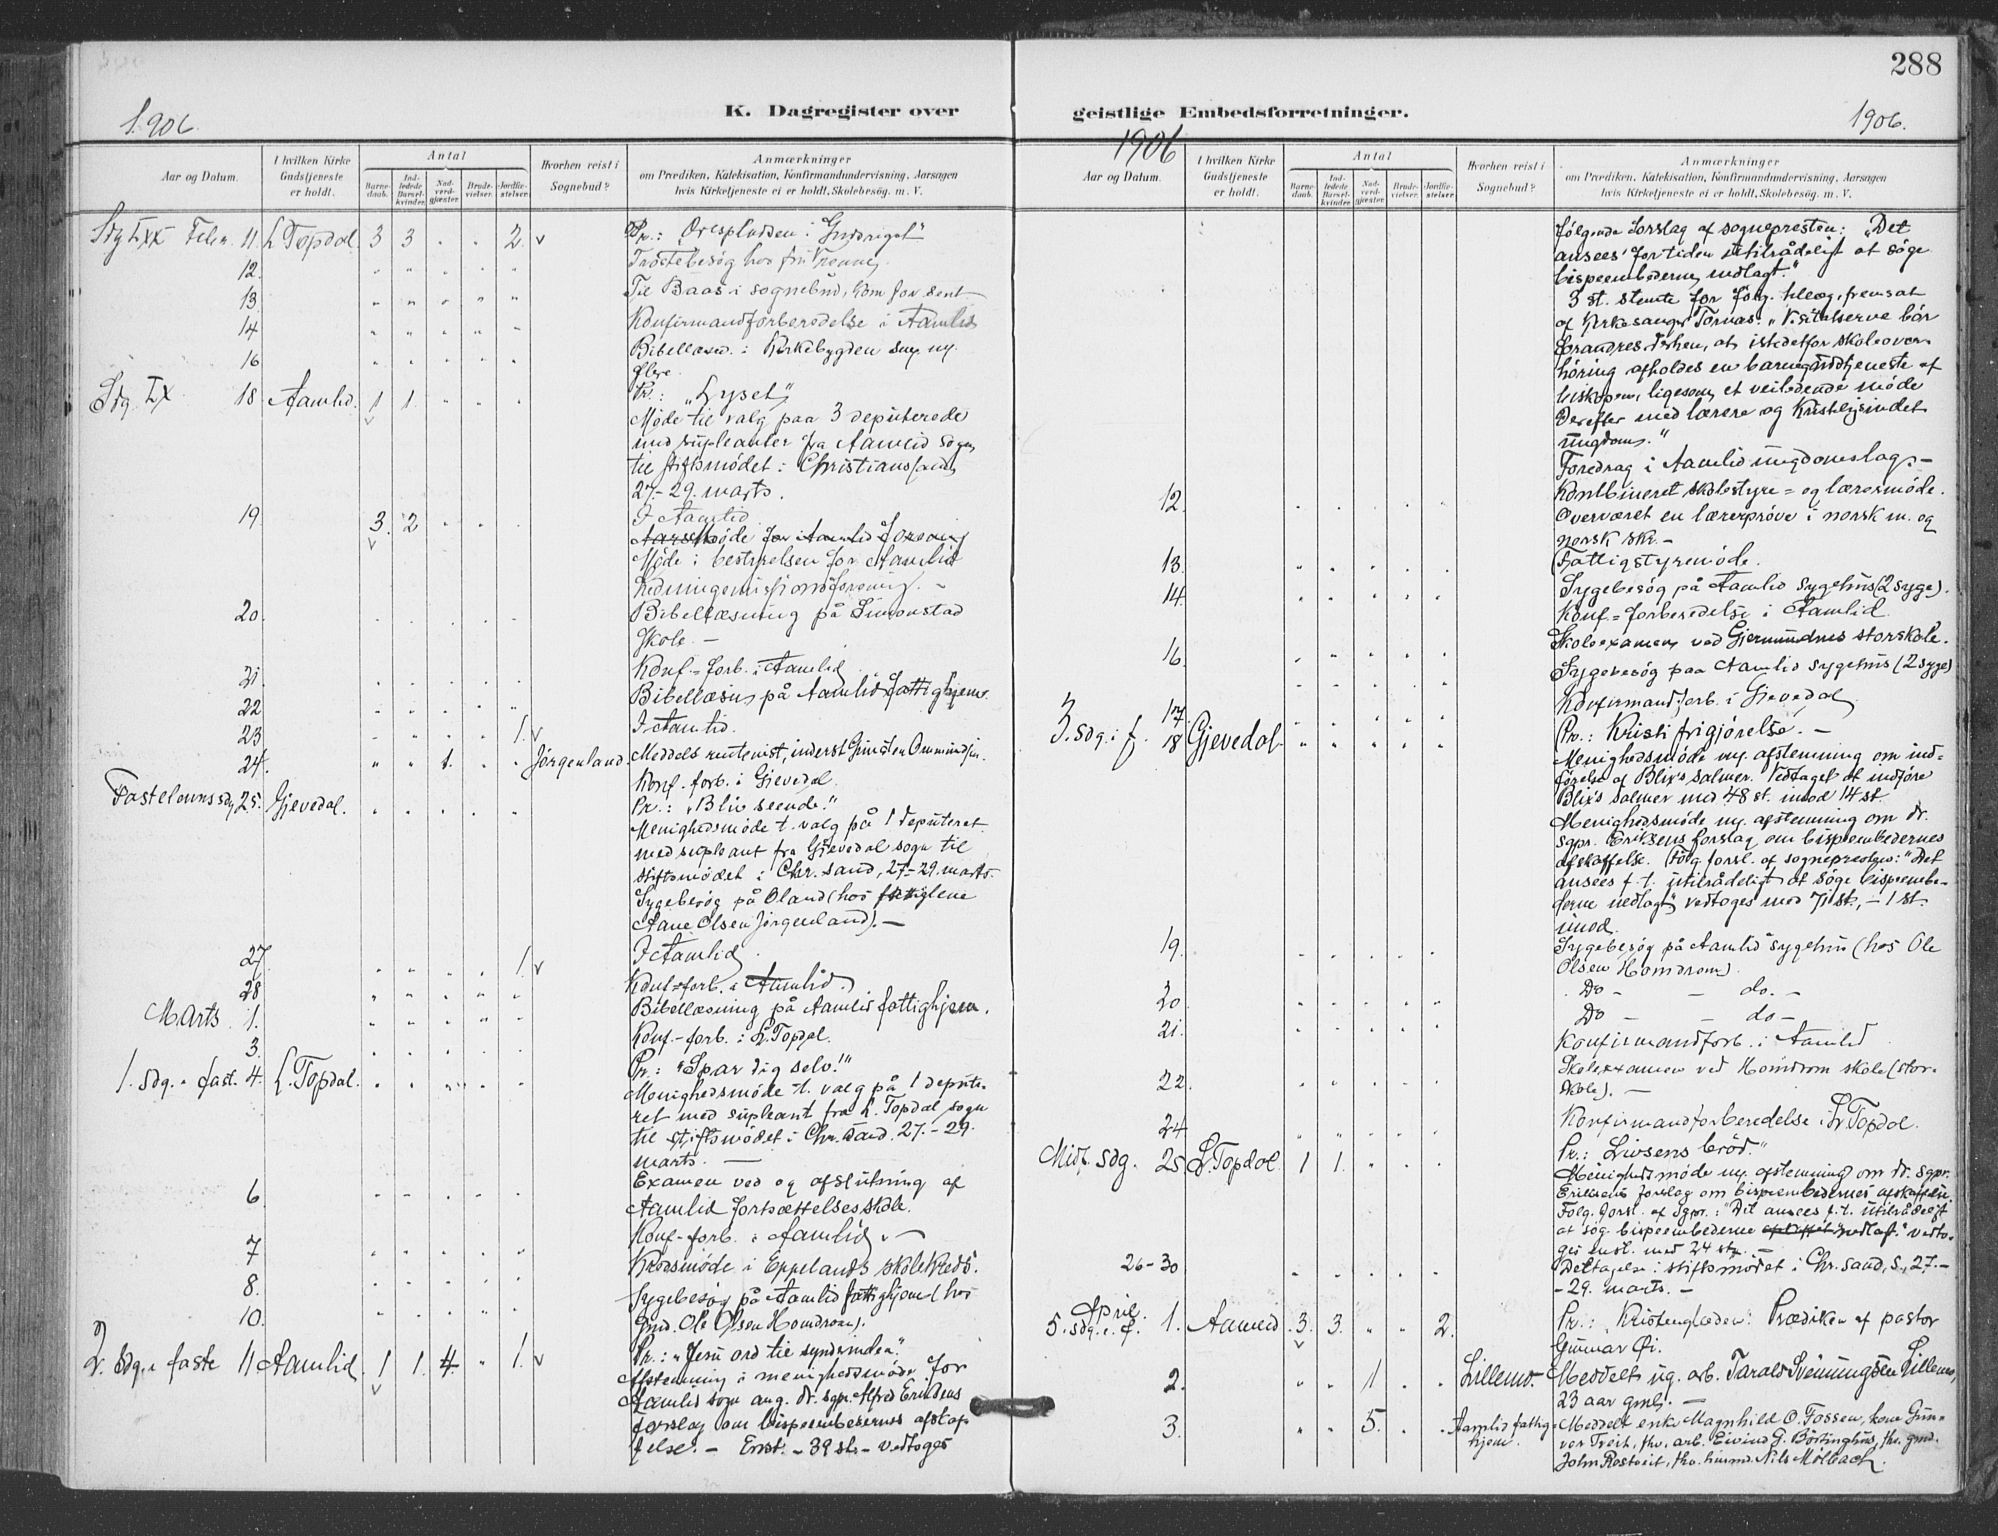 288
1906.
K. Dagregister over
geistlige Embedsforretninger.
1906.
1906
Aar og Datum.
I hvilken Kirke Gudstjeneste er holdt.
Antal
Barne-daab.
Ind-ledede Barsel-kvinder.
Nad-verd-gjæster.
Brude-vielser.
Jordfæ-stelser.
Hvorhen reist i Sognebud?
Anmærkninger
om Prædiken, Katekisation, Konfirmandundervisning, Aarsagen
hvis Kirketjeneste ei er holdt, Skolebesøg, m. V.
11. L. Topdal 3 3 " " 2 v Pr.: i Gudsriget"
12. Trøstebesøg hos
13. Til Baas i sognebud, kom for sent
14 Konfirmandforberedelse i Aamlid
16 Bibellæsn. i Kirkebygden
18 Aamlid. 1 1 Pr.: "Lyset"
Møde til valg paa 3 deputerede
med supleanter fra Aamlid sogn
til stiftsmødet i Christianssand
27.-29. marts.
19 3. 2 I Aamlid
Aarsmøde for Aamlid forening
Møde i bestyrelsen for Aamlid
20. Bibellæsning på Simonstad
skole. -
21 Konf.-forb. i Aamlid
22 Bibellæsn. på Aamlid fattighjem.
23 1. v I Aamlid.
24. 1. Jørgenland. Meddelt
Konf.-forb. i Gjevedal.
Fastelavns sdg. 25. Gjevedal. Pr.: "Bliv seende."
Menighedsmøde t. valg på 1 deputeret
med supleant fra Gjevedal sogn til
stiftsmødet i Chr.sand, 27.-29. marts.
Sygebesøg på Oland (hos
Aane Olsen Jørgenland). -
27 1. v I Aamlid
28 Konf-forb. i Aamlid.
Marts 1. Bibellæsning på Aamlid fattighjem.
3. Konf.-forb. i L. Topdal.
1. Sdg. i fast. 4. L. Topdal. Pr.: "Spar dig selv!"
Menighedsmøde t. valg på 1 depute-
ret med supleant fra L. Topdal sogn
til stiftsmødet i Chr.sand. 27.-29.
marts. -
6 Examen ved og afslutning af
Aamlid fortsættelsesskole.
7 Konf-forb. i Aamlid. -
8. Kredsmøde i Eppelands skolekreds.
10. Sygebesøg på Aamlid fattighjem (hos
Gmd. Ole Olsen Homdrom).
2. Sdg. i faste 11 Aamlid 1 1. 4. 1. v Pr.: "Jesu ord til synderinden".
Afstemning i menighedsmøde for
Aamlid sogn ang. dr. sgpr. Alfred Eriksens
forslag om bispeembedernes afskaf-
felse. - Enst. - 39 st. - vedtoges
følgende forslag af sognepresten: "Det
ansees for tiden utilrådeligt at søge
bispeembederne nedlagt."
3 st. stemte for følg. tillæg, fremsat
af Kirkesanger Tornas: "Visitatserne bør
forandres derhen, at istedetfor skoleover-
høring afholdes en barnegudstjeneste af
biskopen, ligesom et veiledende møde
derefter med lærere og kristeligsindet
ungdom."
Foredrag i Aamlid ungdomslag. -
12. Kombineret skolestyre= og lærermøde.
Overværet en lærerprøve i norsk m. og
norsk skr. -
13. Fattigstyremøde.
14. Sygebesøg på Aamlid sygehus (2 syge).
Konf=forberedelse i Aamlid.
16 Skoleexamen ved Gjermundnes storskole.
Sygebesøg paa Aamlid sygehus (2 syge)
17. Konfirmandforb. i Gjevedal
3. Sdg. i f. 18 Gjevedal. Pr.: Kristi frigjørelse. -
Menighedsmøde m. afstemning om ind=
førelse af Blix's salmer. Vedtaget at indføre
Blix's salmer med 48 st. imod 14 st.
Menighedsmøde m. afstemning om dr.
sgpr. Eriksens forslag om bispeembedernes
afskaffelse. Følg. forsl. af sognepresten: "Det
ansees f. t. utilrådeligt at søge bispeembe-
derne nedlagt" vedtoges med 71 st., - 1 st.
imod.
19. Sygebesøg på Aamlid sygehus (hos Ole
Olsen Homdrom).
20 Do - - do. -
21. Do - - do -
Konfirmandforb. i Aamlid
22. Skoleexamen ved Homdrom skole (stor-
skole). -
24. Konfirmandforberedelse i L. Topdal.
Midf. Sdg. 25 L. Topdal 1 1. Pr.: Livsens brød."
Menighedsmøde m. afstemning om dr. sgpr.
Eriksens forslag om bispeembedernes afskaffelse.
Følg. forsl. af sgpr.: "Det ansees f. t. utilrådeligt
at søg. bispeembederne nedlagt" vedto-
ges enst. med 24 st. -
26-30 Deltagelse i stiftsmødet i Chr.sand, S., 27.-
-29. marts. -
5. sdg. i f. April 1. Aamlid 3. 3. 2. Pr.: "Kristenglæden: Prædiken af pastor
Gunnar Øi.
2. 1 Lillemo. Meddelt ug. arb. Tarald Svenningsen Lillemo,
23 aar gml. -
3. 5. Aamlid fattig-
hjem. Meddelt enke Magnhild O. Fossen, kone Gun-
vor Treit, fhv. arb. Eivind G. fhv. gmd.
John Rostveit, fhv. husmd. Nils Mølbach.